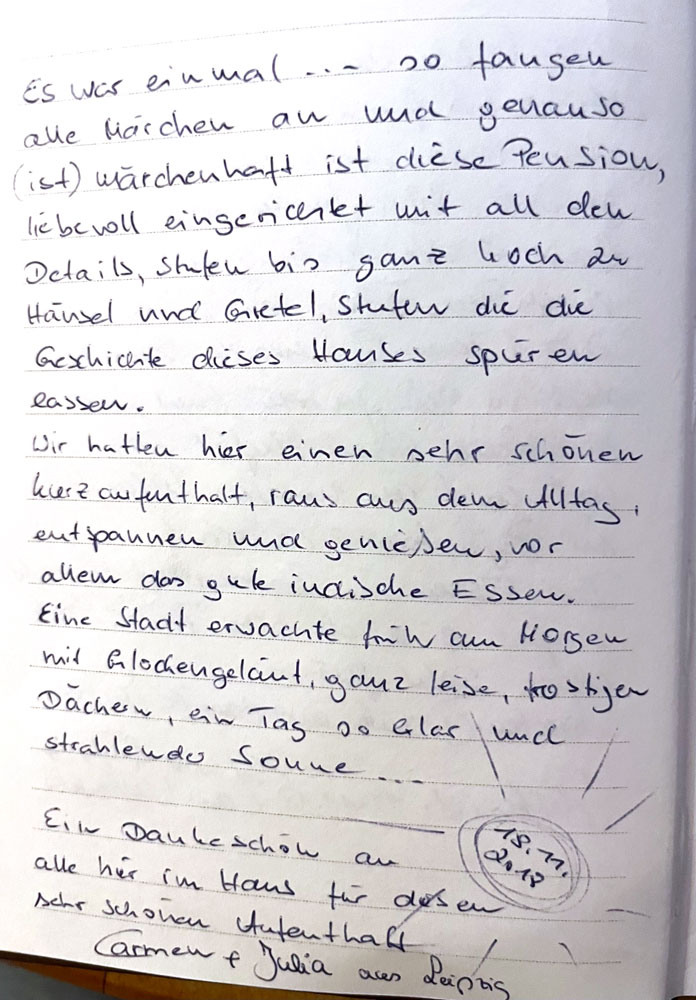 Es war einmal ... so fangen
alle Märchen an und genauso
(ist) märchenhaft ist diese Pension,
liebevoll eingerichtet mit all den
Details, Stufen bis ganz hoch zu
Hänsel und Gretel, Stufen die die
Geschichte dieses Hauses spüren
lassen.
Wir hatten hier einen sehr schönen
Kurzaufenthalt, raus aus dem Alltag,
entspannen und genießen, vor
allem das gute indische Essen.
Eine Stadt erwachte früh am Morgen
mit Glockengeläut, ganz leise, frostigen
Dächern, ein Tag so klar und
strahlender Sonne ...
Ein Dankeschön an
alle hier im Haus für diesen
sehr schönen Aufenthalt
Carmen + Julia aus Leipzig
18.11.
2018